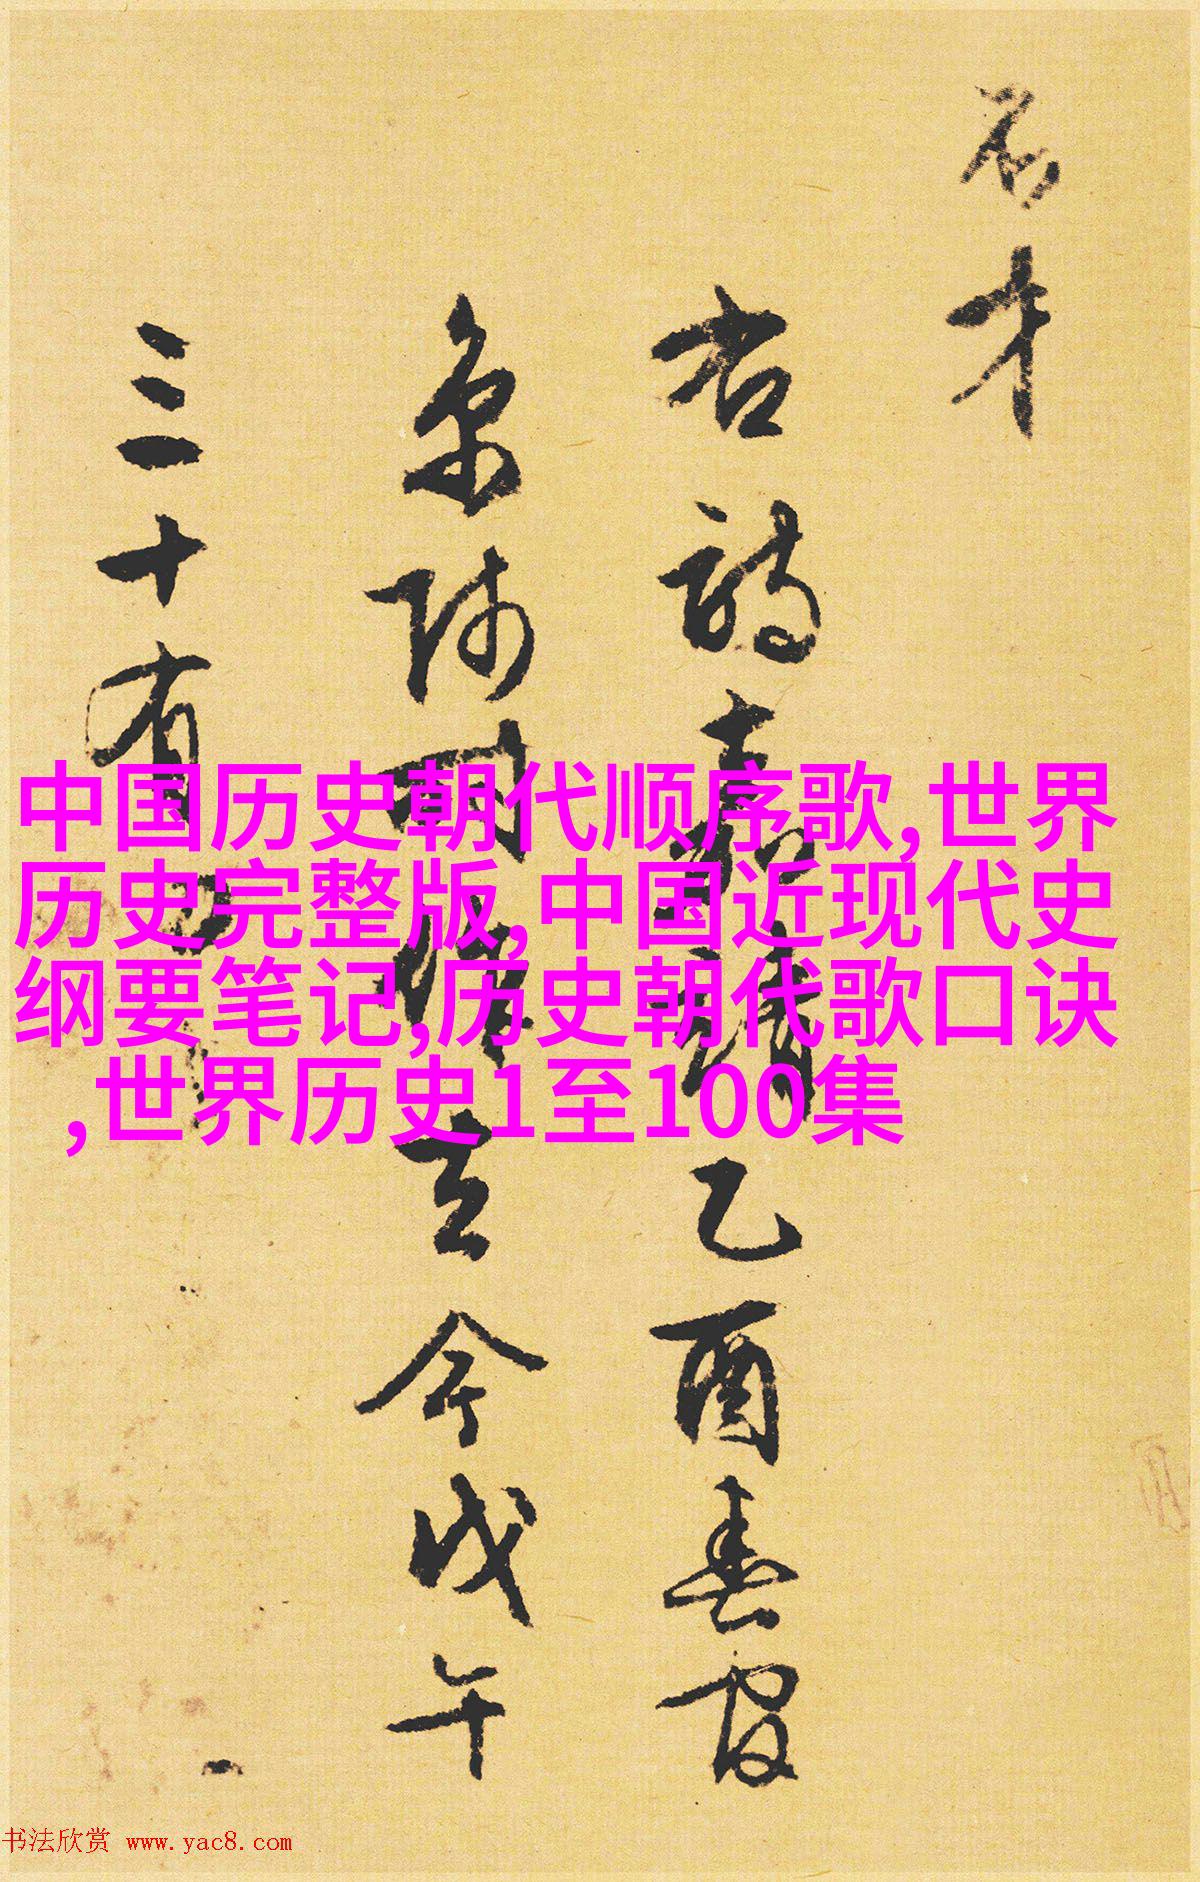 才
右詩嘉靖乙酉春
京師去今戊午
三十有
中国历史朝代顺序歌,世界
历史完整版,中国近现代史
纲要笔记,历史朝代歌口诀
,世界历史1至100集
书法欣赏 www.yac8.com